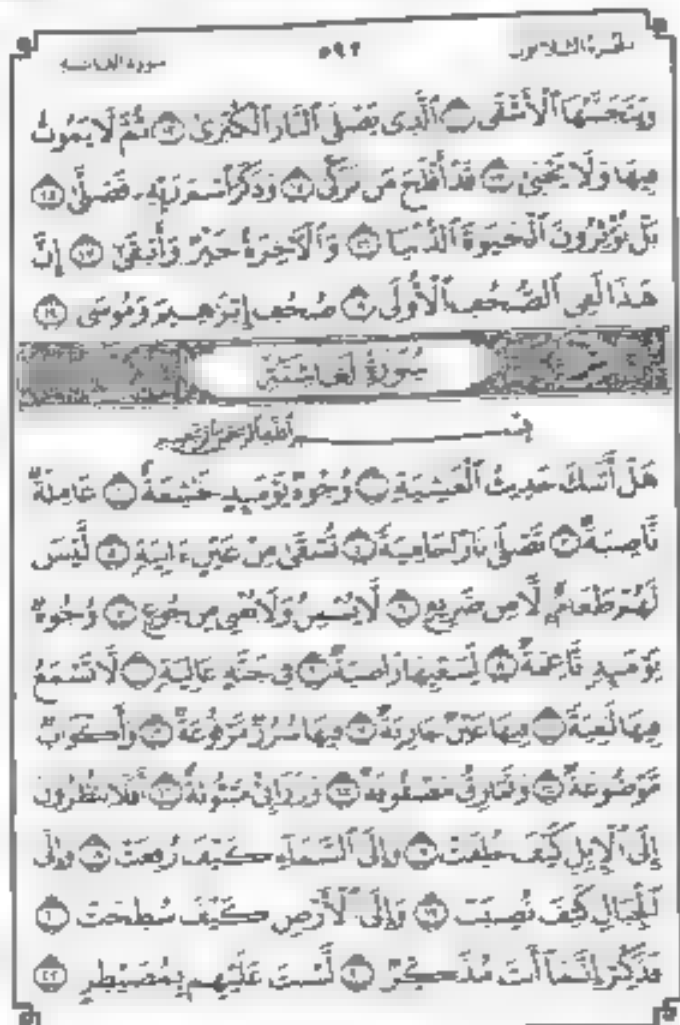 الجزء الثلاثون ٥٩٢ سورة الغاشية
وَيَتَجَنَّبُهَا ٱلْأَشْقَى ١١ ٱلَّذِى يَصْلَى ٱلنَّارَ ٱلْكُبْرَىٰ ١٢ ثُمَّ لَا يَمُوتُ
فِيهَا وَلَا يَحْيَىٰ ١٣ قَدْ أَفْلَحَ مَن تَزَكَّىٰ ١٤ وَذَكَرَ ٱسْمَ رَبِّهِۦ فَصَلَّىٰ ١٥
بَلْ تُؤْثِرُونَ ٱلْحَيَوٰةَ ٱلدُّنْيَا ١٦ وَٱلْءَاخِرَةُ خَيْرٌ وَأَبْقَىٰٓ ١٧ إِنَّ
هَٰذَا لَفِى ٱلصُّحُفِ ٱلْأُولَىٰ ١٨ صُحُفِ إِبْرَٰهِيمَ وَمُوسَىٰ ١٩
سُورَةُ الغَاشِيَةِ
بِسْمِ ٱللَّهِ ٱلرَّحْمَٰنِ ٱلرَّحِيمِ
هَلْ أَتَىٰكَ حَدِيثُ ٱلْغَٰشِيَةِ ١ وُجُوهٌ يَوْمَئِذٍ خَٰشِعَةٌ ٢ عَامِلَةٌ
نَّاصِبَةٌ ٣ تَصْلَىٰ نَارًا حَامِيَةً ٤ تُسْقَىٰ مِنْ عَيْنٍ ءَانِيَةٍ ٥ لَّيْسَ
لَهُمْ طَعَامٌ إِلَّا مِن ضَرِيعٍ ٦ لَّا يُسْمِنُ وَلَا يُغْنِى مِن جُوعٍ ٧ وُجُوهٌ
يَوْمَئِذٍ نَّاعِمَةٌ ٨ لِّسَعْيِهَا رَاضِيَةٌ ٩ فِى جَنَّةٍ عَالِيَةٍ ١٠ لَّا تَسْمَعُ
فِيهَا لَٰغِيَةً ١١ فِيهَا عَيْنٌ جَارِيَةٌ ١٢ فِيهَا سُرُرٌ مَّرْفُوعَةٌ ١٣ وَأَكْوَابٌ
مَّوْضُوعَةٌ ١٤ وَنَمَارِقُ مَصْفُوفَةٌ ١٥ وَزَرَابِىُّ مَبْثُوثَةٌ ١٦ أَفَلَا يَنظُرُونَ
إِلَى ٱلْإِبِلِ كَيْفَ خُلِقَتْ ١٧ وَإِلَى ٱلسَّمَآءِ كَيْفَ رُفِعَتْ ١٨ وَإِلَى
ٱلْجِبَالِ كَيْفَ نُصِبَتْ ١٩ وَإِلَى ٱلْأَرْضِ كَيْفَ سُطِحَتْ ٢٠
فَذَكِّرْ إِنَّمَآ أَنتَ مُذَكِّرٌ ٢١ لَّسْتَ عَلَيْهِم بِمُصَيْطِرٍ ٢٢